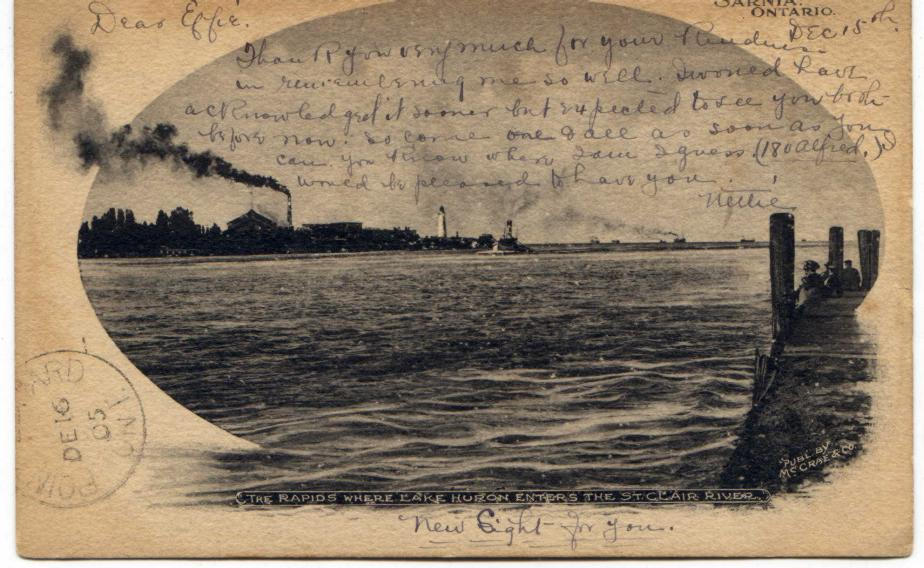 SARNIA.
ONTARIO.
Dear Effie.
Dec 15th.
Thank you very much for your kindness
in remembering me so well. I would have
acknowledged it sooner but expected to see you both
before now. so come one & all as soon as you
can. you know where I am I guess. (180 Alfred.)
would be pleased to have you.
Nettie
DE 16
05
ONT.
THE RAPIDS WHERE LAKE HURON ENTERS THE ST. CLAIR RIVER.
PUBL. BY
MCCRAE & CO.
New Sight for you.